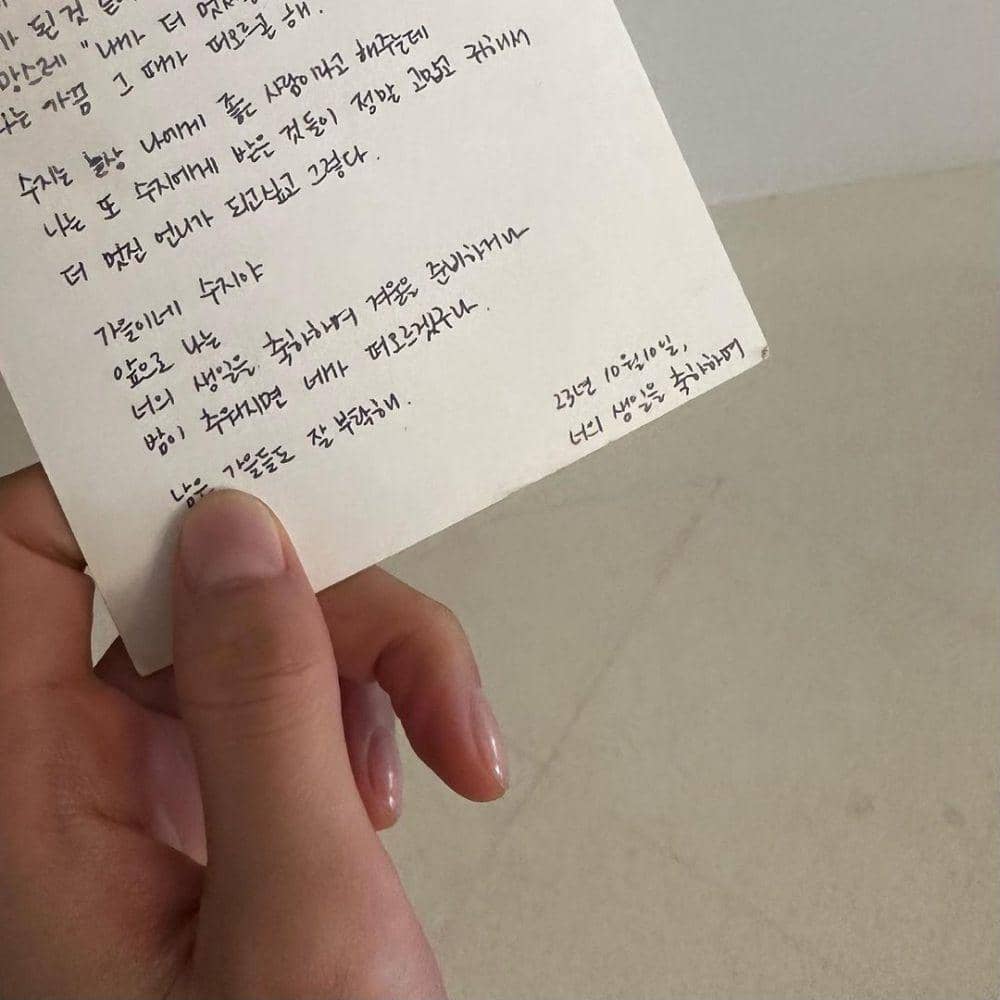 가 된 것
"내가 더
나는 가끔 그 때가 떠오르곤 해.
수지는 늘상 나에게 좋은 사람이라고 해주는데
나는 또 수지에게 받은 것들이 정말 고맙고 귀해서
더 멋진 언니가 되고싶고 그렇다.
가을이네 수지야
앞으로 나는
너의 생일을 축하하며 겨울을 준비하거나
밤이 추워지면 네가 떠오르겠구나.
남은 가을들도 잘 부탁해.
23년 10월10일,
너의 생일을 축하하며